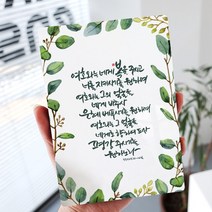 여호와는 네게 복을 주고
너를 지키시기를 원하며
여호와는 그의 얼굴을
네게 비추사
은혜 베푸시기를 원하며
여호와는 그 얼굴을
네게로 향하여 드사
평강 주시기를
원하노라